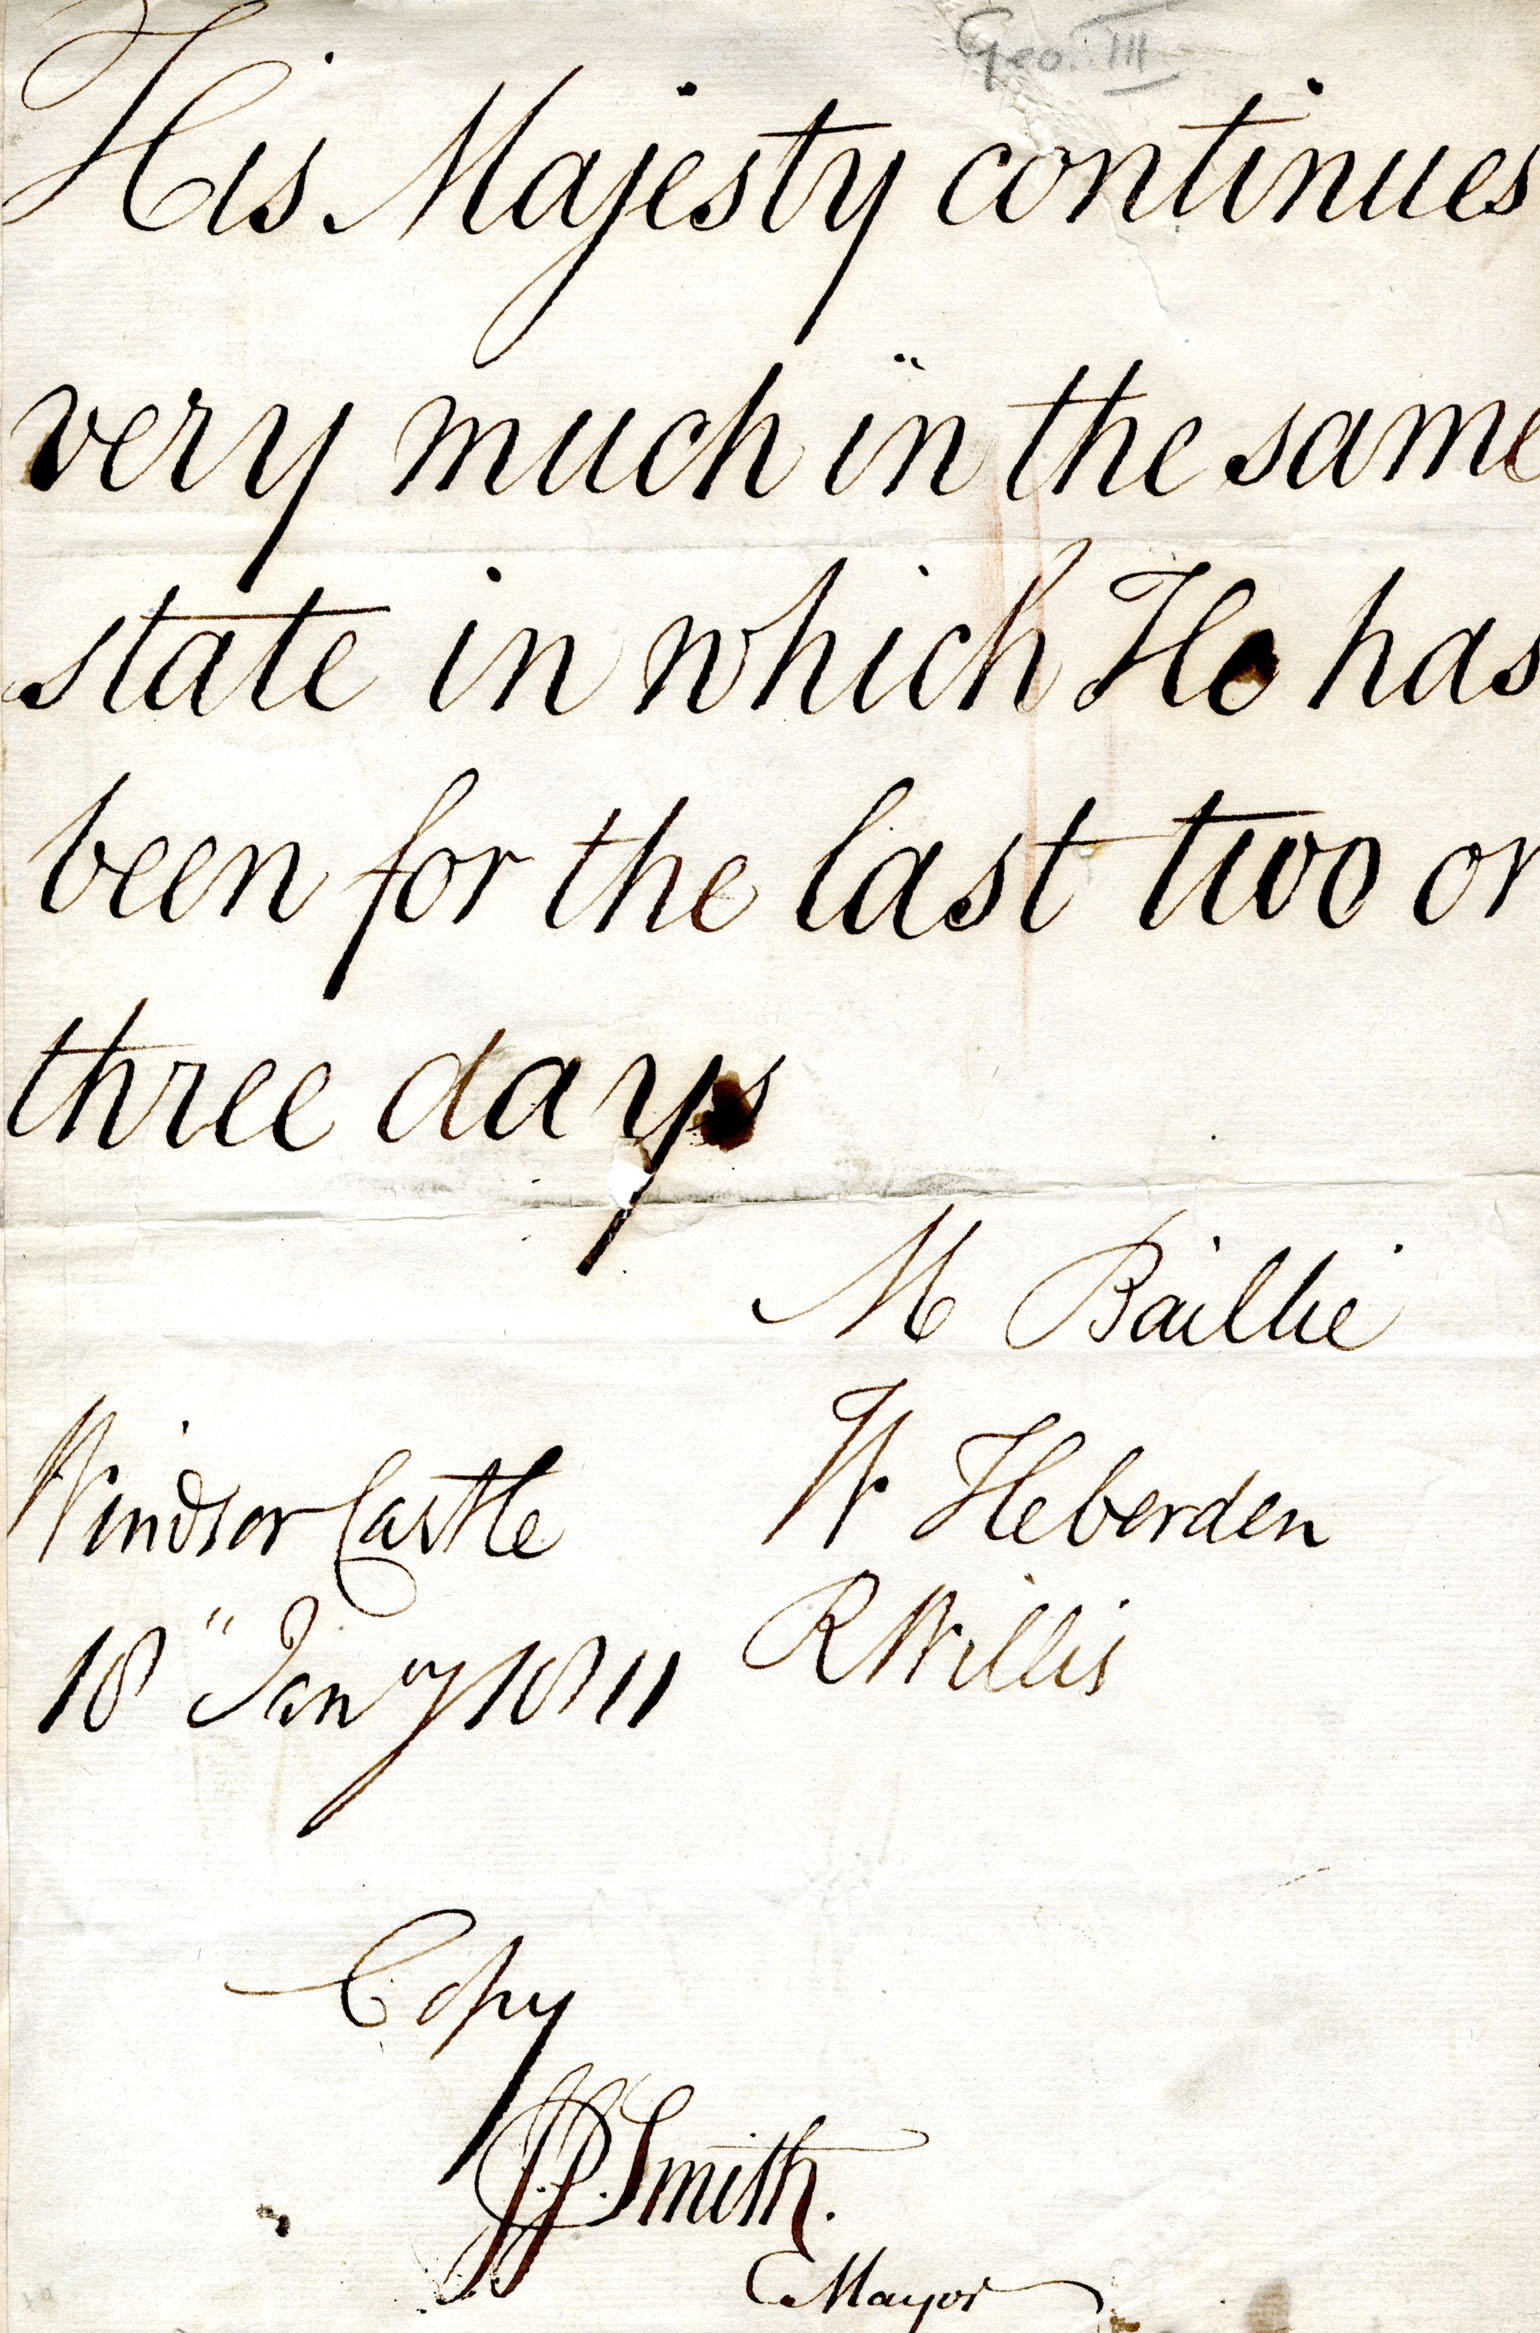 Geo. III
His Majesty continues
very much in the same
state in which He has
been for the last two or
three days
M Baillie
W Heberden
R Willis
Windsor Castle
18" Jany 1811
Copy
J.P. Smith.
Mayor